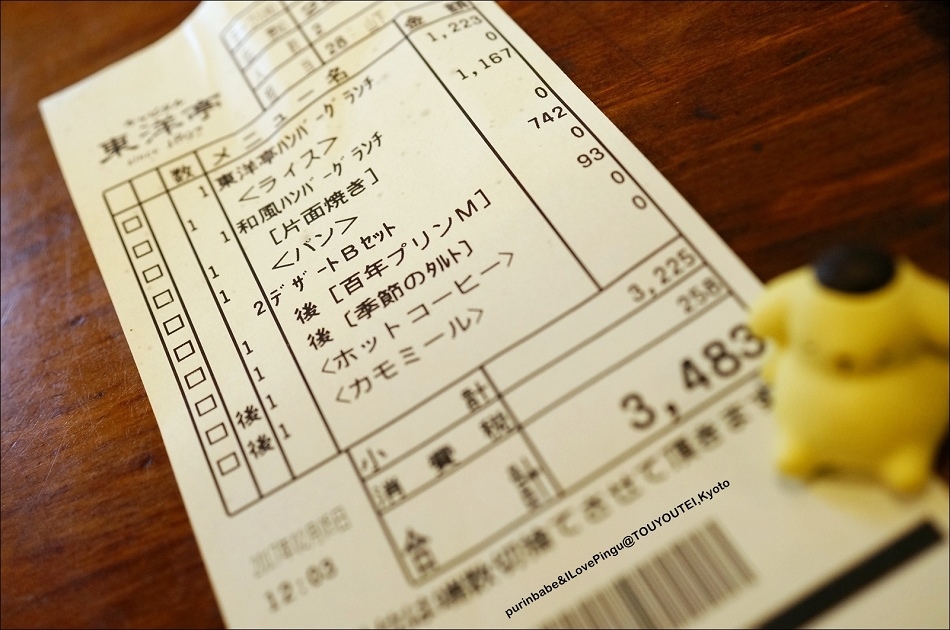 東洋亭
since 1897
数 メニュー名 金額
1 東洋亭ハンバーグランチ 1,223
1 <ライス> 0
1 和風ハンバーグランチ 1,167
1 [片面焼き]
1 <パン> 0
2 デザートBセット 742
1 後 [百年プリンM] 0
1 後 [季節のタルト] 93
後 1 <ホットコーヒー> 0
後 1 <カモミール> 0
小計 3,225
消費税 258
合計 3,483
端数切捨てさせて頂きます
12:03
purinbabe&ILovePingu@TOUYOUTEI,Kyoto